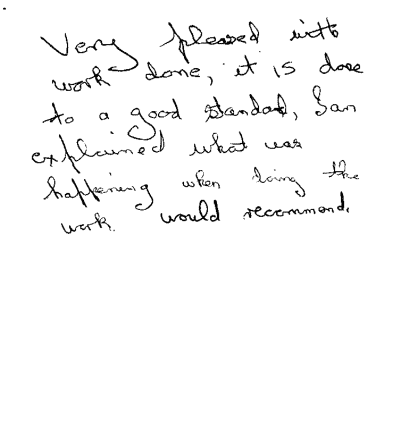 Very pleased with
work done, it is done
to a good standard, Ian
explained what was
happening when doing the
work. would recommend.